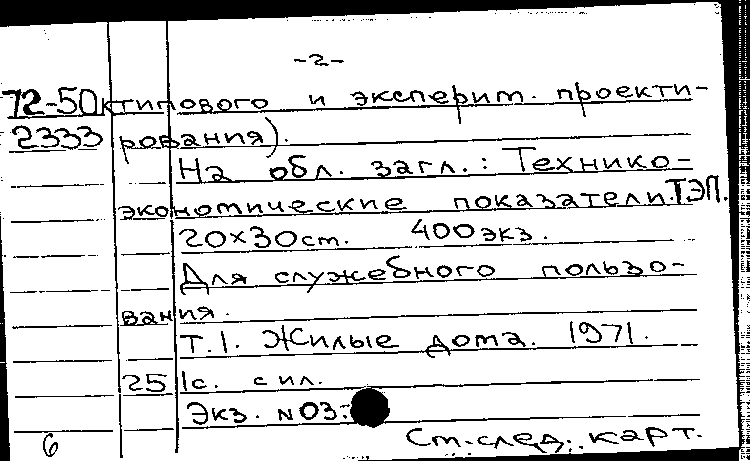 -2-
72-50к типового и эксперим. проекти-
2333 рования).
На обл. загл.: Технико-
экономические показатели. ТЭП.
20х30см. 400 экз.
Для служебного пользо-
вания.
Т.1. Жилые дома. 1971.
251с. с ил.
Экз. N 03:
6 См. след. карт.